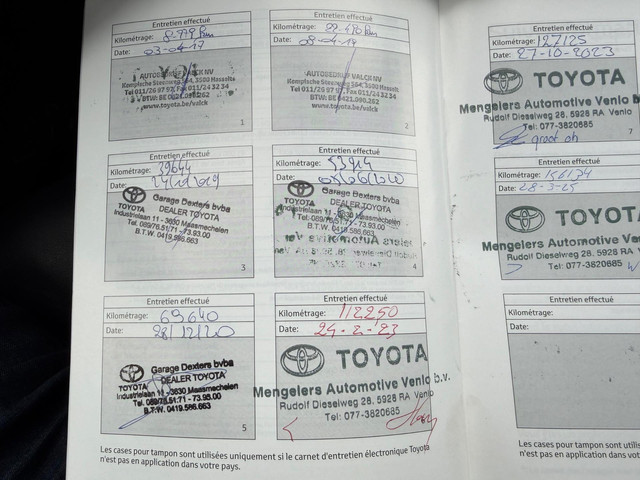 Entretien effectué
Kilométrage:
Date: 03-04-17
AUTOBEDRIJF VALCK NV
Kempische Steenweg 504, 3500 Hasselt
www.toyota.be/valck
1
Entretien effectué
Kilométrage:
Date:
AUTOBEDRIJF VALCK NV
Kempische Steenweg 504, 3500 Hasselt
Tel 011/26 97 97, Fax 011/24 32 34
www.toyota.be/valck
2
Entretien effectué
Kilométrage: 39644
Date:
TOYOTA
Garage Dexters bvba
DEALER TOYOTA
Industrielaan 11 - 3630 Maasmechelen
Tel. 089/76.51.71 - 73.93.00
B.T.W. 0419.586.663
3
Entretien effectué
Kilométrage: 53914
Date:
TOYOTA
Garage Dexters bvba
DEALER TOYOTA
4
Entretien effectué
Kilométrage: 69640
Date: 28/12/20
TOYOTA
Garage Dexters bvba
DEALER TOYOTA
Industrielaan 11 - 3630 Maasmechelen
Tel. 089/76.51.71 - 73.93.00
B.T.W. 0419.586.663
5
Entretien effectué
Kilométrage: 112250
Date: 24-2-23
TOYOTA
Mengelers Automotive Venlo b.v.
Rudolf Dieselweg 28, 5928 RA Venlo
Tel: 077-3820685
Les cases pour tampon sont utilisées uniquement si le carnet d'entretien électronique Toyota
n'est pas en application dans votre pays.
Entretien effectué
Kilométrage: 127125
Date: 27-10-2023
TOYOTA
Mengelers Automotive Venlo b
Rudolf Dieselweg 28, 5928 RA Venlo
Tel: 077-3820685
7
Entretien effectué
Kilométrage: 156174
Date: 28-3-25
TOYOTA
Mengelers Automotive Venlo
Rudolf Dieselweg 28, 5928 RA Ve
Tel: 077-3820685
Entretien effectué
Kilométrage:
Date:
Les cases pour tampon sont utilisées uniquement si le c
n'est pas en application dans votre pays.